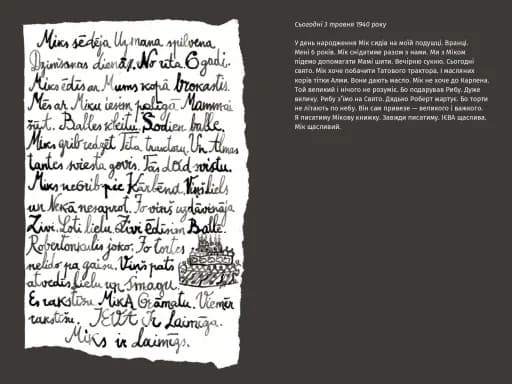 Miks sēdēja Uz mana spilvena
Dzimšanas dienā. No rīta 6 gadi.
Miks ēdīs ar Mums kopā brokastis.
Mēs ar Miku iesim palīgā Mammai
šūt. Balles kleitu. Šodien balle.
Miks grib redzēt Tēta traktoru. Un Almas
tantes sviesta govis. Tās dod sviestu.
Miks negrib pie Kārbena. Viņš liels
un Neko nesaprot. To viņš uzdāvināja
Zivi. Ļoti lielu. Zivi ēdīsim Ballē.
Robertonkulis joko. Jo tortes
nelido pa gaisu. Viņš pats
atvedīs lielu un smagu.
Es rakstīšu Mika Grāmatu. Vienmēr
rakstīšu. IEVA Ir Laimīga.
Miks ir laimīgs.
Сьогодні 3 травня 1940 року
У день народження Мік сидів на моїй подушці. Вранці.
Мені 6 років. Мік снідатиме разом з нами. Ми з Міком
підемо допомагати Мамі шити. Вечірню сукню. Сьогодні
свято. Мік хоче побачити Татового трактора. І масляних
корів тітки Алми. Вони дають масло. Мік не хоче до Карпена.
Той великий і нічого не розуміє. Бо подарував Рибу. Дуже
велику. Рибу з'їмо на Свято. Дядько Роберт жартує. Бо торти
не літають по небу. Він сам привезе — великого і важкого.
Я писатиму Мікову книжку. Завжди писатиму. ІЄВА щаслива.
Мік щасливий.